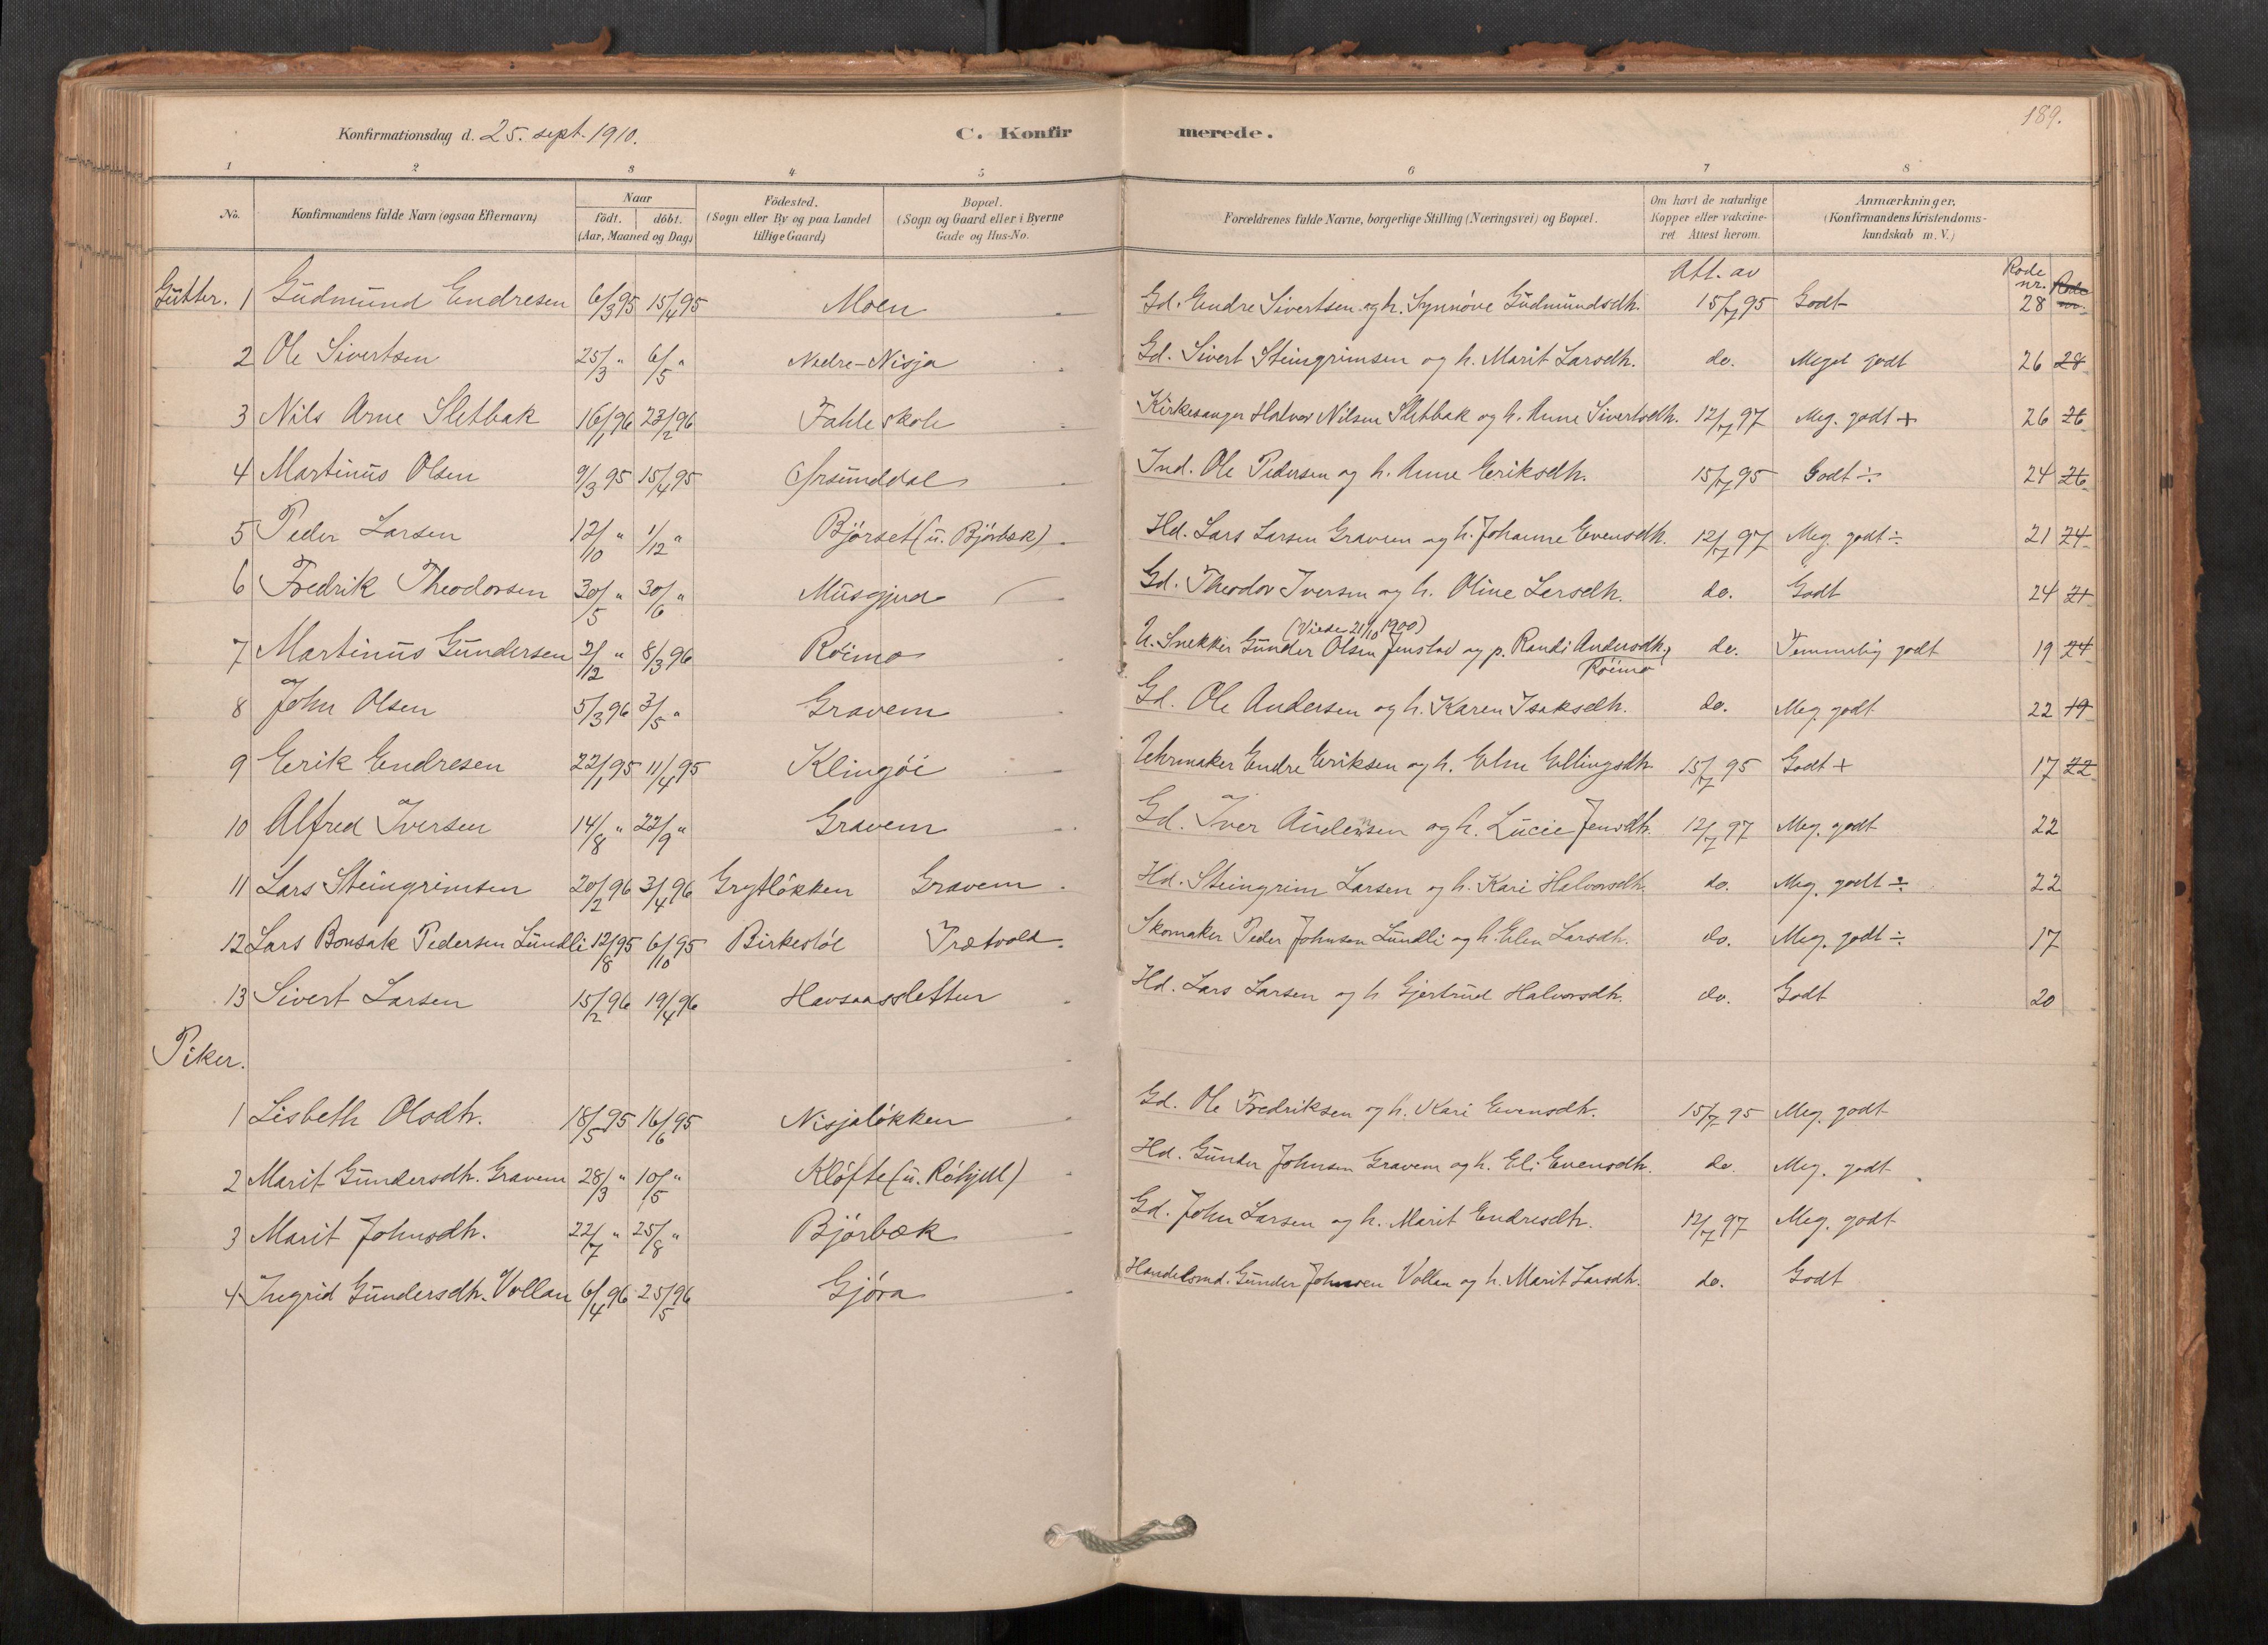 189.
Konfirmationsdag d. 25. sept. 1910. C. Konfirmerede.
1 2 3 4 5 6 7 8
No. Konfirmandens fulde Navn (ogsaa Efternavn) Naar födt. döbt. (Aar, Maaned og Dag.) Födested. (Sogn eller By og paa Landet tillige Gaard) Bopæl. (Sogn og Gaard eller i Byerne Gade og Hus-No. Forældrenes fulde Navne, borgerlige Stilling (Næringsvei) og Bopæl. Om havt de naturlige Kopper eller vakcineret Attest herom. Anmærkninger, (Konfirmandens Kristendomskundskab m. V.)
Att. av Rode nr. Rode nr.
Gutter. 1 Gudmund Endresen 6/3 95 15/4 95 Moen Gd. Endre Sivertsen og h. Synnøve Gudmundsdh. 15/7 95 Godt 28
2 Ole Sivertsen 25/3 " 6/5 " Nedre-Nisja Gd. Sivert Steingrimsen og h. Marit Larsdh. do. Meget godt 26 28
3 Nils Arne Sletbak 16/1 96 23/2 96 Fahle skole Kirkesanger Halvor Nilsen Sletbak og h. Anne Sivertsdh. 12/7 97 Meg. godt + 26 26
4 Martinus Olsen 9/3 95 15/4 95 Grsunddal Ind. Ole Pedersen og h. Anne Eriksdh. 15/7 95 Godt ÷ 24 26
5 Peder Larsen 12/10 " 1/12 " Bjørset (u. Bjørbæk) Hd. Lars Larsen Gravem og h. Johanne Evensdh. 12/7 97 Meg. godt ÷ 21 24
6 Fredrik Theodorsen 30/5 " 30/6 " Musgjerd Gd. Theodor Iversen og h. Oline Larsdh. do. Godt 24 21
(Viede 21/10 1900)
7 Martinus Gundersen 2/12 " 8/3 96 Roimo U. Snekker Gunder Olsen Jenstad og p. Randi Andersdh. Röimo do. Temmelig godt 19 24
8 John Olsen 5/3 96 3/5 " Gravem Gd. Ole Andersen og h. Karen Isaksdh. do. Meg. godt 22 19
9 Erik Endresen 22/1 95 11/4 95 Klingöi Uhrmaker Endre Eriksen og h. Elen Ellingsdh. 15/7 95 Godt + 17 22
10 Alfred Iversen 14/8 " 22/9 " Gravem Gd. Iver Andersen og h. Lucie Jensdh. 12/7 97 Meg. godt 22
11 Lars Steingrimsen 20/2 96 3/4 96 Grytløkken Gravem Hd. Steingrim Larsen og h. Kari Halvorsdh. do. Meg. godt ÷ 22
12 Lars Bonsak Pedersen Lundli 12/8 95 6/10 95 Birkestöl Prætvold Skomaker Peder Johnsen Lundli og h. Elen Larsdh. do. Meg. godt ÷ 17
13 Sivert Larsen 15/2 96 19/4 96 Havsaasslettun Hd. Lars Larsen og h Gjertrud Halvorsdh. do. Godt 20
Piker.
1 Lisbeth Olsdh. 18/5 95 16/6 95 Nisjaløkken Gd. Ole Fredriksen og h. Kari Evensdh. 15/7 95 Meg. godt
2 Marit Gundersdh. Gravem 28/3 " 10/5 " Kløfte (u. Röhjell) Hd. Gunder Johnsen Gravem og h. Eli Evensdh. do. Meg. godt
3 Marit Johnsdh. 22/7 " 25/8 " Bjørbæk Gd. John Larsen og h. Marit Endresdh. 12/7 97 Meg. godt
4 Ingrid Gundersdh. Vollan 6/4 96 25/5 96 Gjøra Handelsmd. Gunder Johnsen Vollan og h. Marit Larsdh. do. Godt